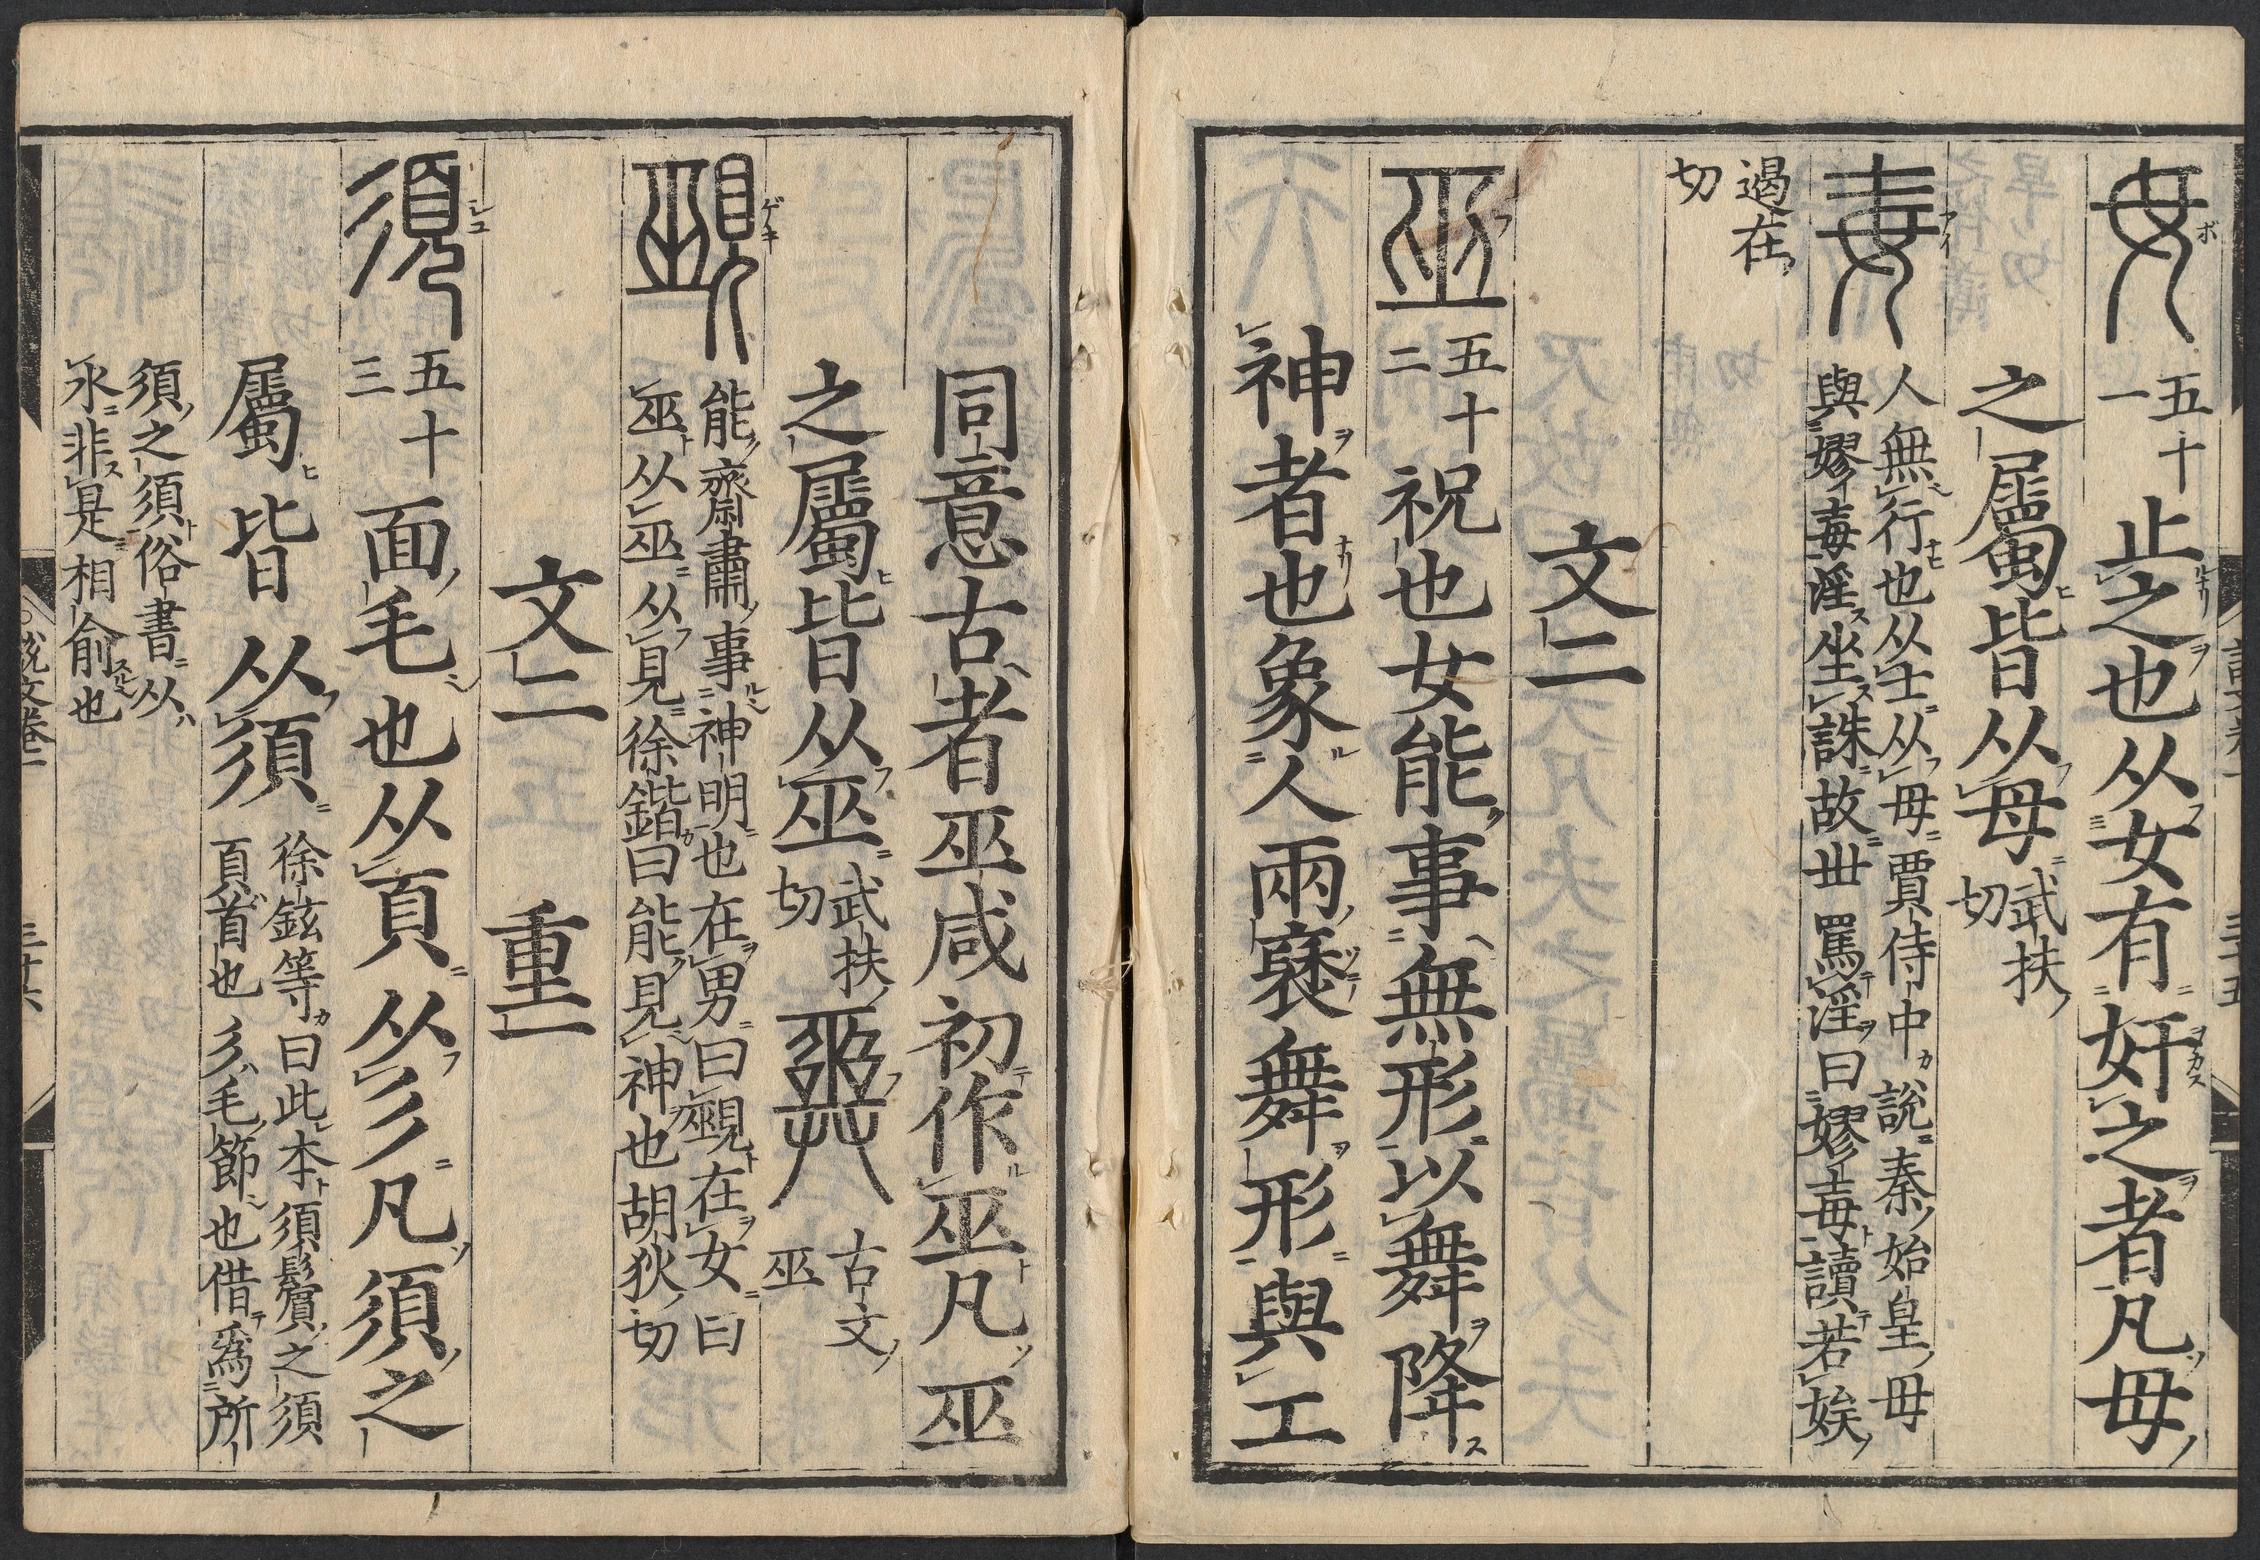 毋 五十一 止之也从女有奸之者凡毋
之屬皆从毋 武扶切
毐 人無行也从士从毋賈侍中說秦始皇毋
與嫪毐淫坐誅故世罵淫曰嫪毐讀若娭
遏在切
文二
巫 五十二 祝也女能事無形以舞降
神者也象人兩褎舞形與工
同意古者巫咸初作巫凡巫
之屬皆从巫 武扶切 古文巫
覡 能齋肅事神明也在男曰覡在女曰
巫从巫从見徐鍇曰能見神也胡狄切
文二 重一
須 五十三 面毛也从頁从彡凡須之
屬皆从須 徐鉉等曰此本須鬢之須
頁首也彡毛節也借爲所
須之須俗書从
水非是相俞也
說文卷二 三十六